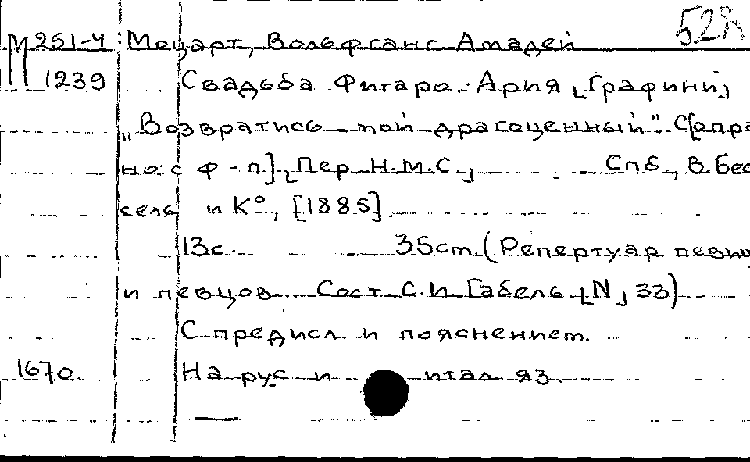 528
М 251-4 Моцарт, Вольфганг Амадей
1239 Свадьба Фигаро. Ария [Графини]
"Возвратись мой драгоценный". С[опра
но с ф-п.]. [Пер. Н.М.С.] Спб., В. Бес
сель и К°, [1885]
13с. 35см. (Репертуар певиц
и певцов. Сост. С.И. Габель. [N] 33)
С предисл. и пояснением.
1670 На рус. и итал. яз.